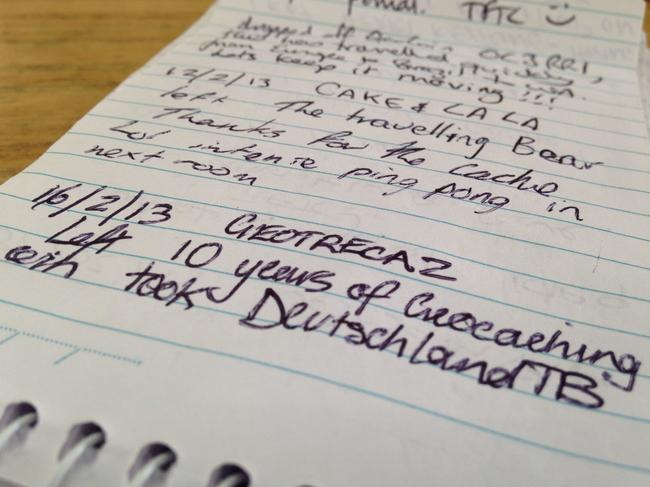 TFTC
dropped off
this has travelled
from Europe to
Lets keep it moving!!!
12/2/13 CAKE & LA LA
left The travelling Bear
Thanks for the cache
Lol intense ping pong in
next room
16/2/13 GEOTRECAZ
Left 10 years of Geocaching
coin took Deutschland TB